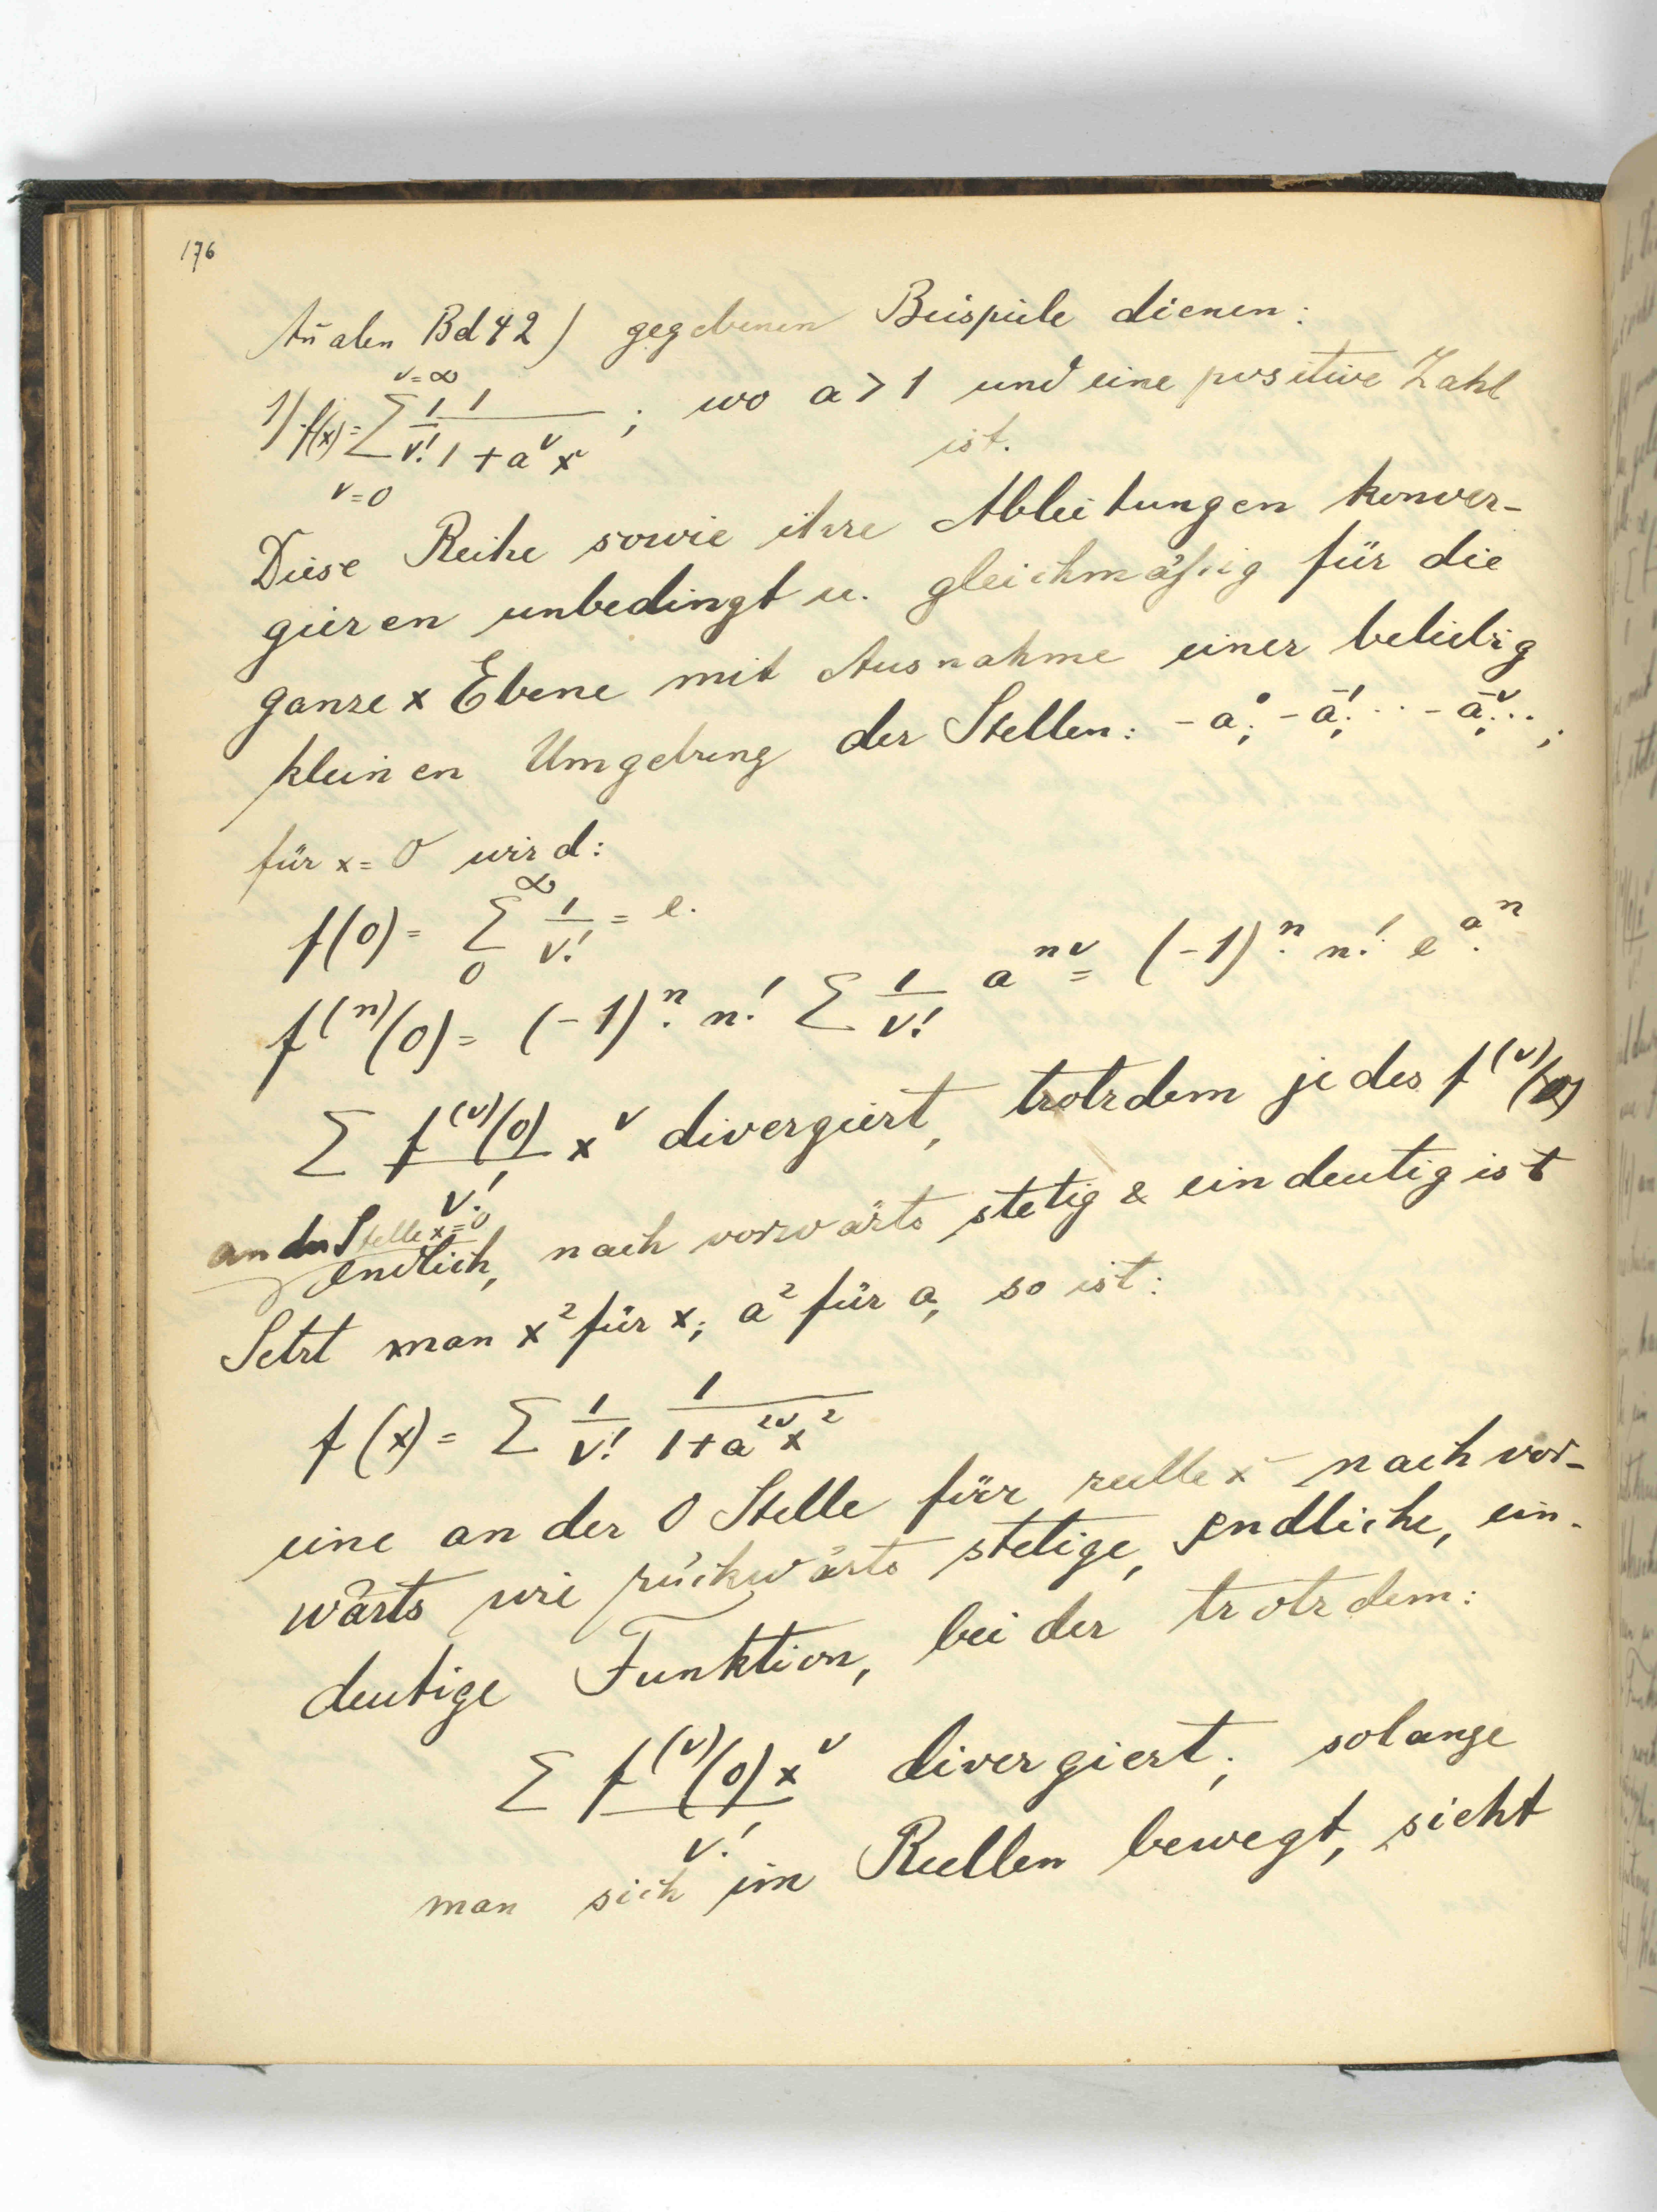 176
Añalen Bd 42) gegebenen Beispiele dienen:
1) f(x) = \sum_{ν=0}^{ν=∞} \frac{1}{ν!} \frac{1}{1+a^ν x}; wo a > 1 und eine positive Zahl
ist.
Diese Reihe sowie ihre Ableitungen konver-
gieren unbedingt u. gleichmäßig für die
ganze x Ebene mit Ausnahme einer beliebig
kleinen Umgebung der Stellen: -a^0; -a^{-1}; ·· -a^{-ν}; ... ;
für x = 0 wird:
f(0) = \sum_0^∞ \frac{1}{ν!} = e.
f^{(n)}(0) = (-1)^n. n! \sum \frac{1}{ν!} a^{nν} = (-1)^n. n! e^{a^n}.
\sum \frac{f^{(ν)}(0)}{ν!} x^ν divergiert, trotzdem jedes f^{(ν)}(x)
an der Stelle x=0
endlich, nach vorwärts stetig & eindeutig ist
Setzt man x² für x; a² für a, so ist:
f(x) = \sum \frac{1}{ν!} \frac{1}{1+a^{2ν}x^2}
eine an der 0 Stelle für reelle x nach vor-
wärts wie rückwärts stetige, endliche, ein-
deutige Funktion, bei der trotzdem:
\sum \frac{f^{(ν)}(0)}{ν!} x^ν divergiert; solange
man sich im Reellen bewegt, sieht